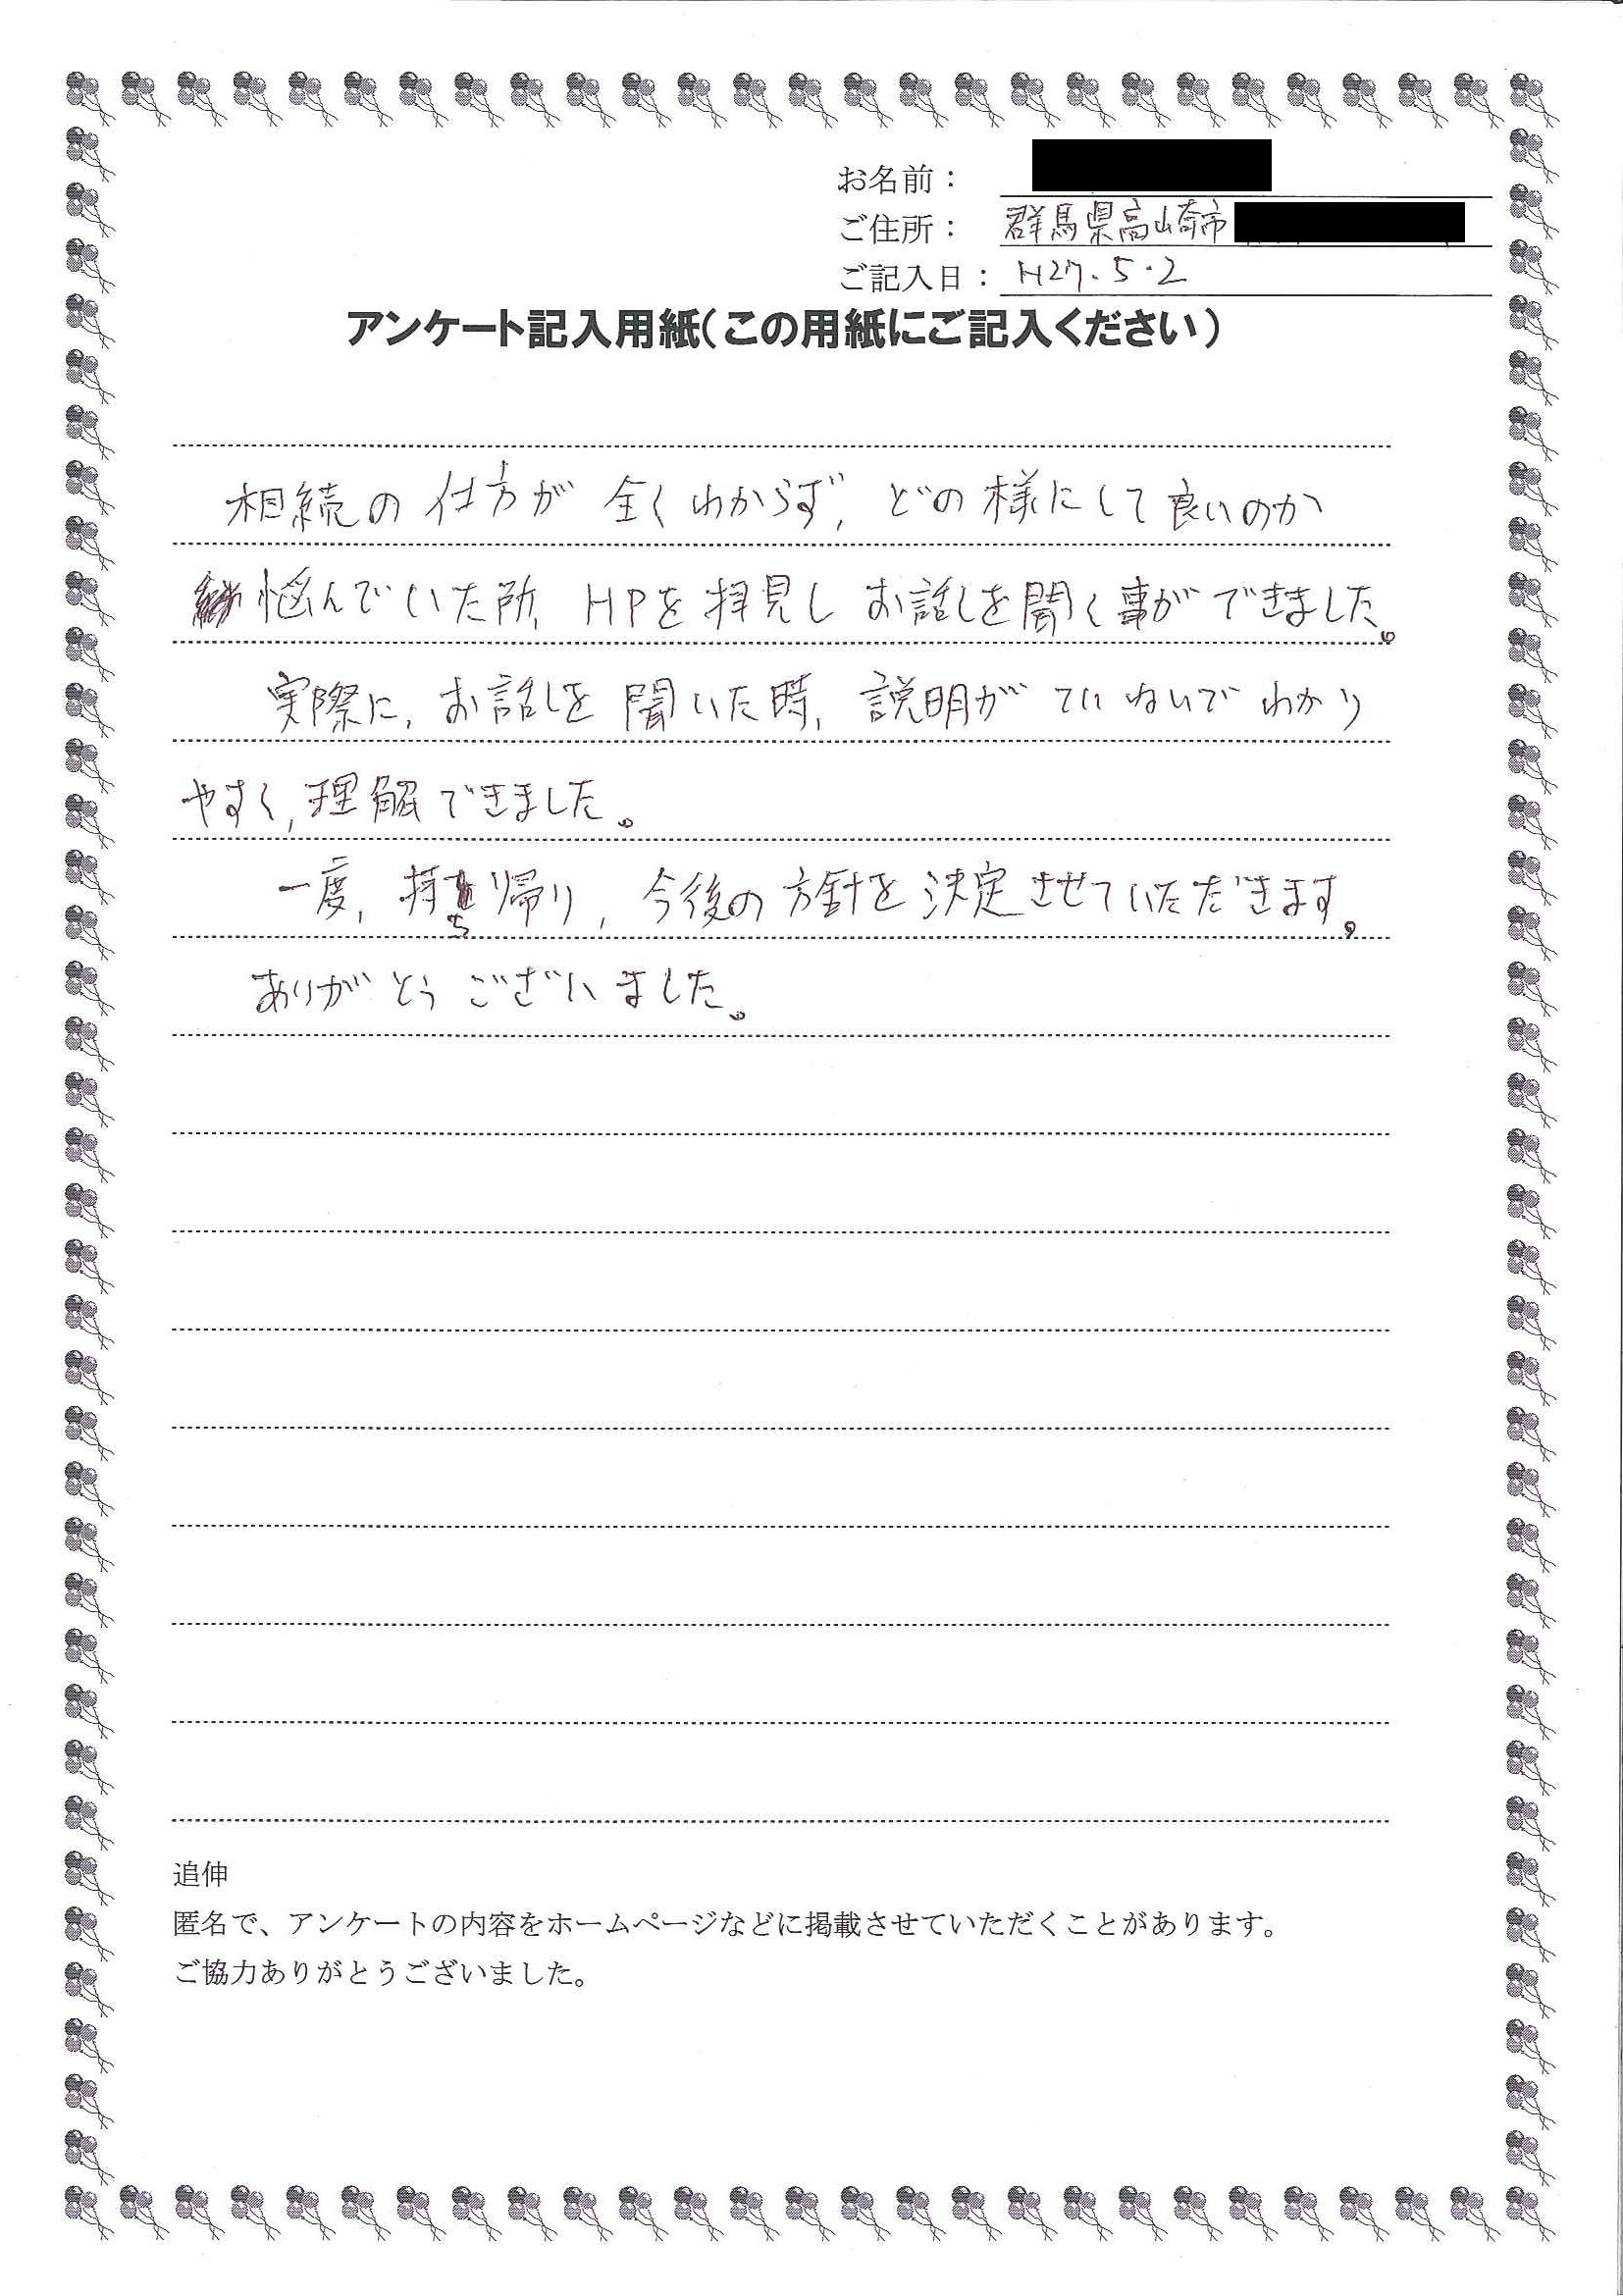 お名前：
ご住所： 群馬県高崎市
ご記入日： H27.5.2
アンケート記入用紙（この用紙にご記入ください）
相続の仕方が全くわからず、どの様にして良いのか
悩んでいた所、HPを拝見しお話しを聞く事ができました。
実際に、お話しを聞いた時、説明がていねいでわかり
やすく、理解できました。
一度、持ち帰り、今後の方針を決定させていただきます。
ありがとうございました。
追伸
匿名で、アンケートの内容をホームページなどに掲載させていただくことがあります。
ご協力ありがとうございました。